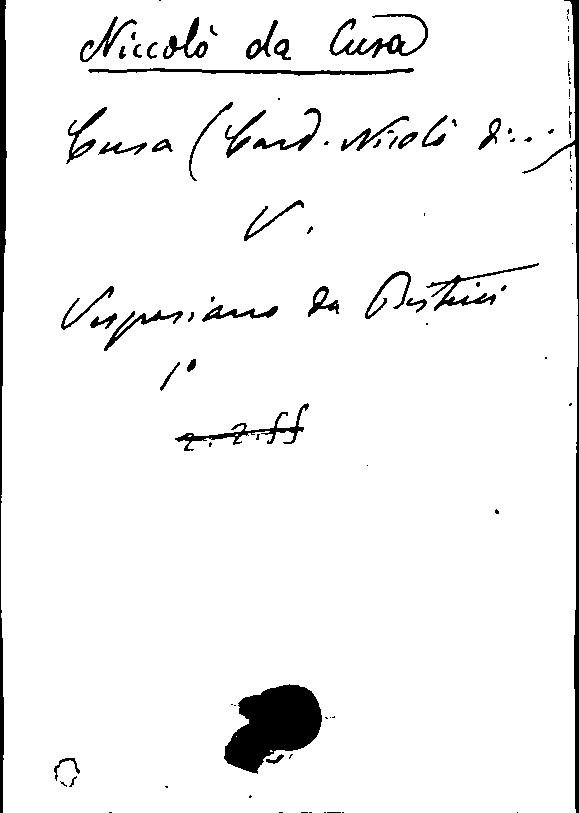 Niccolò da Cusa
Cusa (Card. Nicolò di...)
V.
Vespasiano da Bisticci
1º
2.2.ff